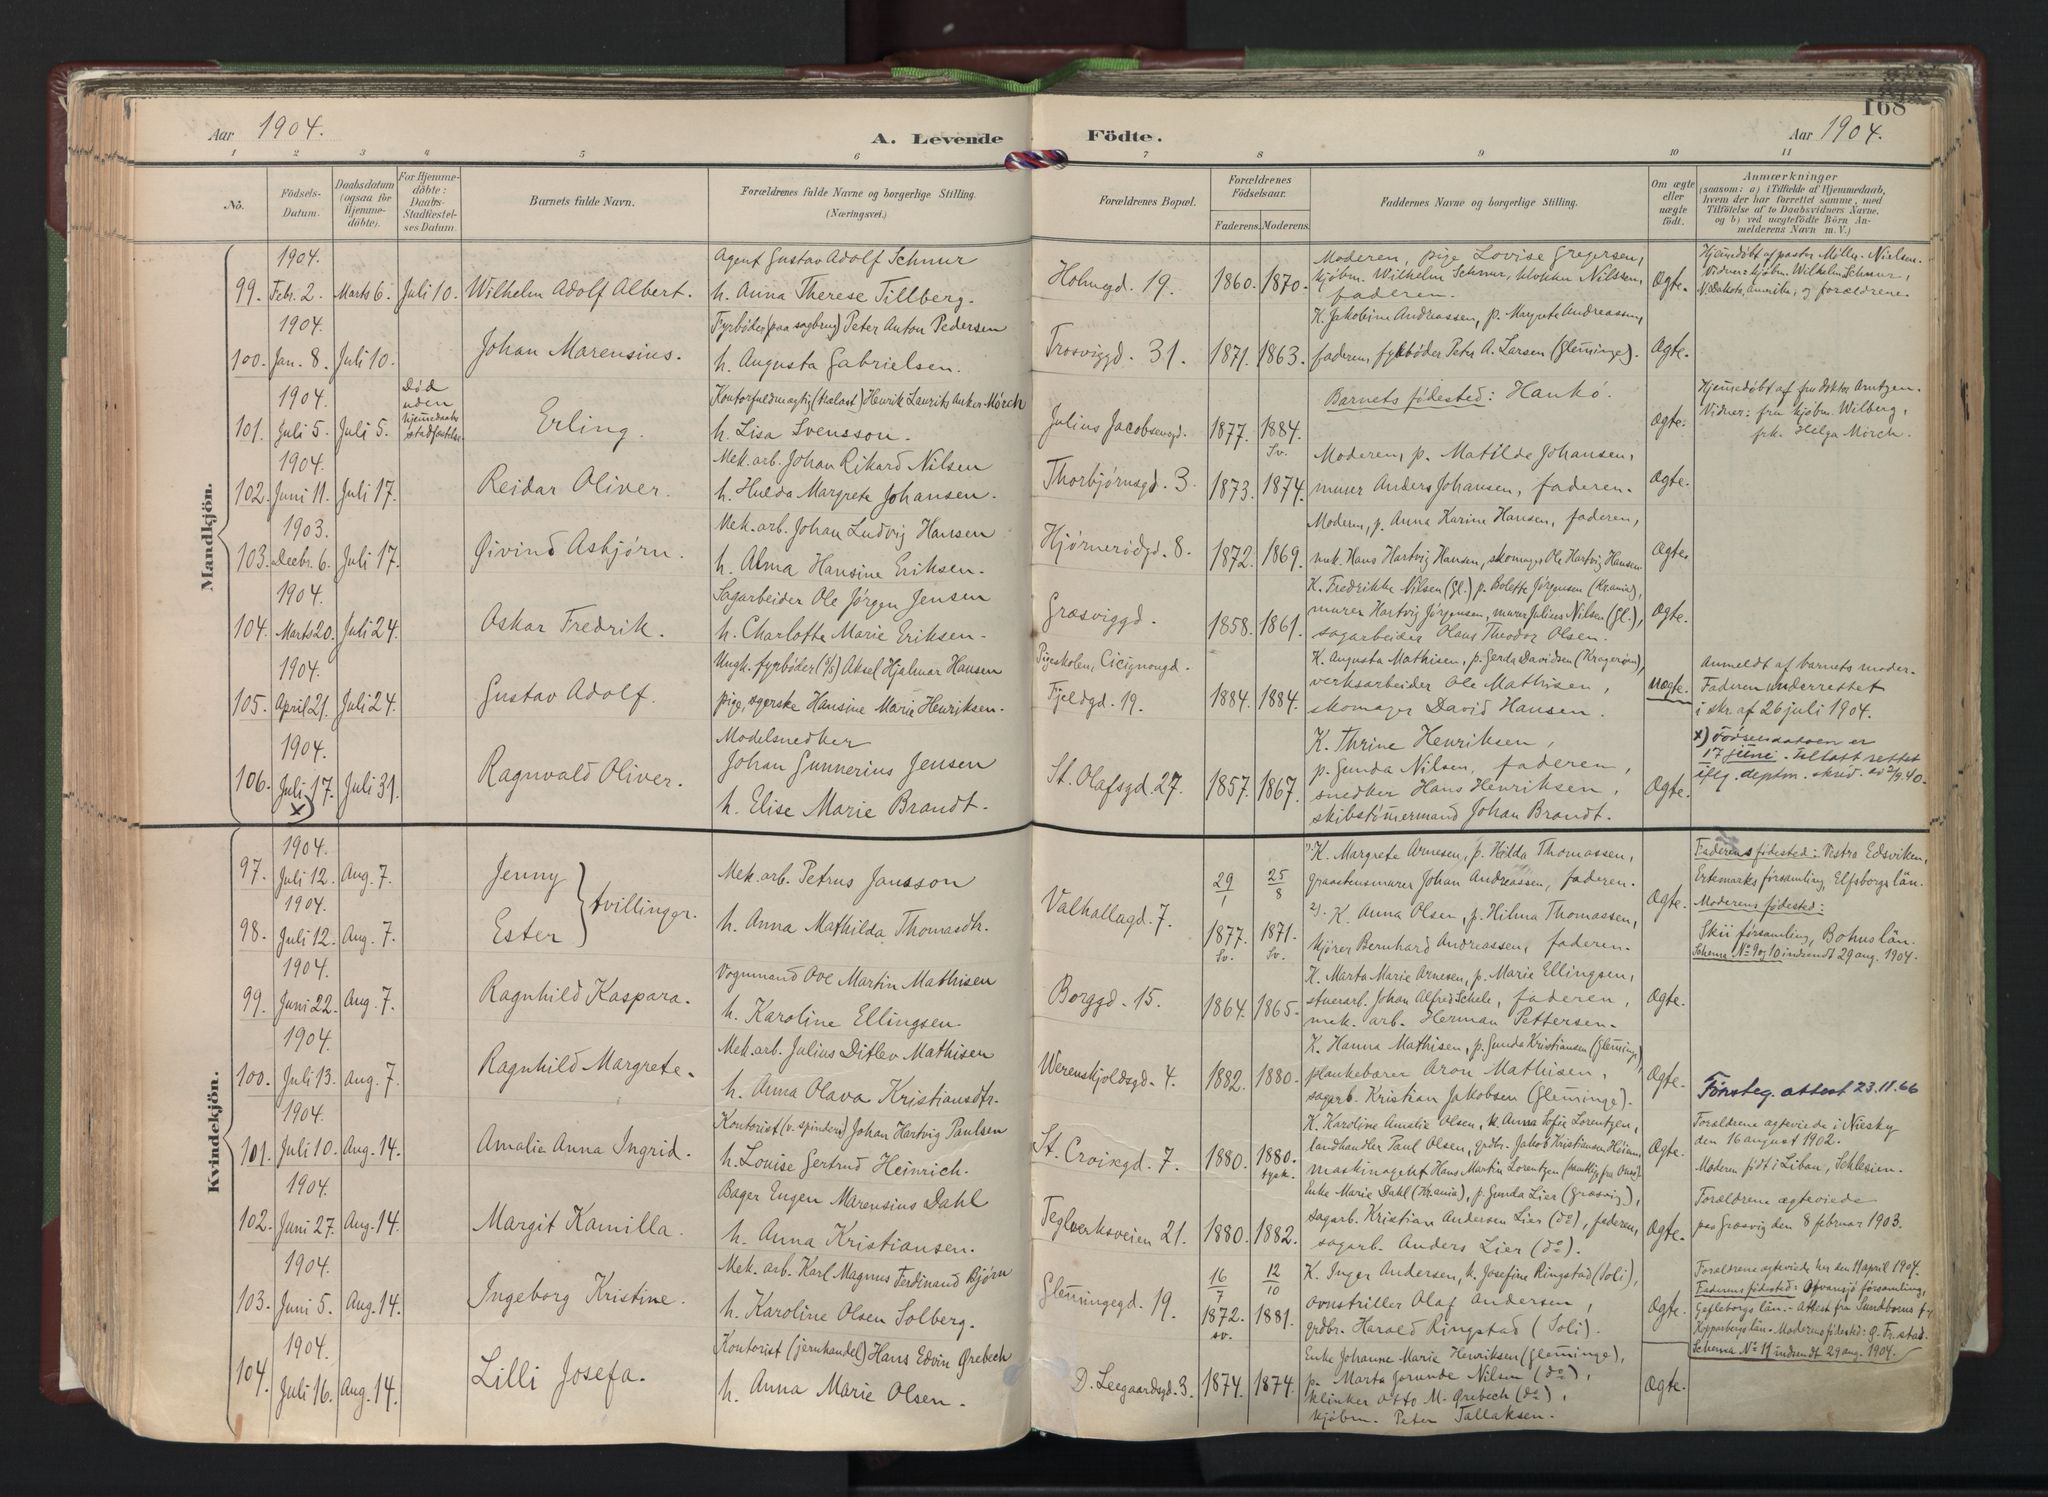 168
Aar 1904.
A. Levende Födte.
Aar 1904.
1 2 3 4 5 6 7 8 9 10 11
No.
Födsels-Datum.
Daabsdatum (ogsaa for Hjemmedöbte).
For Hjemmedöbte: Daabs-Stadfæstelses Datum.
Barnets fulde Navn.
Forældrenes fulde Navne og borgerlige Stilling. (Næringsvei.)
Forældrenes Bopæl.
Forældrenes Födselsaar.
Faderens. Moderens.
Faddernes Navne og borgerlige Stilling.
Om ægte eller uægte födt.
Anmærkninger
(saasom: a) i Tilfælde af Hjemmedaab, hvem der har forrettet samme, med Tilföielse af to Daabsvidners Navne, og b) ved uægtefödte Börn Anmelderens Navn m. V.)
Mandkjön.
99. 1904. Febr. 2. Marts 6. Juli 10. Wilhelm Adolf Albert.
Agent Gustav Adolf Schnur
h. Anna Therese Tillberg.
Holmegd. 19. 1860. 1870.
Moderen, pige Lovise Gregersen,
kjøbm. Wilhelm Schnur, Nilssen,
faderen.
Ægte.
Hjemmedøbt af pastor Møller-Nielsen.
Vidner: kjøbm. Wilhelm Schnur,
N. Dakota, Amerika, og forældrene.
100. 1904. Jan. 8. Juli 10. Johan Marensius.
Fyrbøder (paa sagbrug) Peter Anton Pedersen
h. Augusta Gabrielsen.
Trosviggd. 31. 1871. 1863.
K. Jakobine Andreassen, p. Margrete Andreassen,
faderen, fyrbøder Peter A. Larsen (Glemminge).
Ægte.
101. 1904. Juli 5. Juli 5. Død uden hjemmedaabsstadfæstelse
Erling.
Kontorfuldmægtig (trælast) Henrik Laurits Anker-Mørch
h. Lisa Svensson.
Julius Jacobsensgd. 1877. 1884. Sv.
Barnets fødested: Hankø.
Ægte.
Hjemmedøbt af fru doktor Arntzen.
Vidner: fru kjøbm. Wilberg,
frk. Helga Mörch.
102. 1904. Juni 11. Juli 17. Reidar Oliver.
Mek. arb. Johan Rikard Nilsen
h. Hulda Margrete Johansen.
Thorbjørnsgd. 3. 1873. 1874.
Moderen, p. Matilde Johansen,
murer Anders Johansen, faderen.
Ægte.
103. 1903. Decbr. 6. Juli 17. Øivind Asbjørn.
Mek. arb. Johan Ludvig Hansen
h. Alma Hansine Eriksen.
Hjørnerødgd. 8. 1872. 1869.
Moderen, p. Anna Karine Hansen, faderen,
mek. Hans Hartvig Hansen, skomager Ole Hartvig Hansen
Ægte.
104. 1904. Marts 20. Juli 24. Oskar Fredrik.
Sagarbeider Ole Jørgen Jensen
h. Charlotte Marie Eriksen.
Græsviggd. 1858. 1861.
K. Fredrikke Nilsen (Gl.), p. Bolette Jørgensen (Krania),
murer Hartvig Jørgensen, murer Julius Nilsen (Gl.),
sagarbeider Olaus Theodor Olsen.
Ægte.
105. 1904. April 21. Juli 24. Gustav Adolf.
Ungk. fyrbøder (s/s) Aksel Hjalmar Hansen
pige, syerske Hansine Marie Henriksen.
Pigeskolen, Cicignongd.
Fjeldgd. 19. 1884. 1884.
K. Augusta Mathisen, p. Gerda Davidsen (Kragerøen),
verksarbeider Ole Mathisen,
skomager David Hansen.
Uægte.
Anmeldt af barnets moder.
Faderen underrettet
i skr. af 26 juli 1904.
106. 1904. Juli 17. x) Juli 31. Ragnvald Oliver.
Modelsnedker
Johan Gunnerius Jensen
h. Elise Marie Brandt.
St. Olafsgd. 27. 1857. 1867.
K. Thrine Henriksen,
p. Gunda Nilsen, faderen,
snedker Hans Henriksen,
skibstømermand Johan Brandt.
Ægte.
x) Fødselsdatoen er
17 juni. Tillatt rettet
iflg. deptm. skriv. av 2/9.40.
Kvindekjön.
97. 1904. Juli 12. Aug. 7. Jenny
98. 1904. Juli 12. Aug. 7. Ester
tvillinger.
Mek. arb. Petrus Jansson
h. Anna Mathilda Thomasdtr.
Valhallagd. 7. 29/1 1877. Sv. 25/8 1871. Sv.
1) K. Margrete Arnesen, p. Hilda Thomassen,
graastensmurer Johan Andreassen, faderen.
2). K. Anna Olsen, p. Hilma Thomassen,
kjører Bernhard Andreassen, faderen.
Ægte.
Faderens fødested: Vestra Edsviken,
Ertemarks församling, Elfsborgs län.
Moderens fødested:
Skii församling, Bohus län.
Schema No 9 og 10 indsendt 29 aug. 1904.
99. 1904. Juni 22. Aug. 7. Ragnhild Kaspara.
Vognmand Ove Martin Mathisen
h. Karoline Ellingsen
Borggd. 15. 1864. 1865.
K. Marta Marie Arnesen, p. Marie Ellingsen,
stuerarb. Johan Alfred Schele, faderen,
mek. arb. Herman Pettersen.
Ægte.
100. 1904. Juli 13. Aug. 7. Ragnhild Margrete.
Mek. arb. Julius Ditlev Mathisen
h. Anna Olava Kristiansdtr.
Werenskjoldsgd. 4. 1882. 1880.
K. Hanna Mathisen, p. Gunda Kristiansen (Glemminge),
plankebærer Aron Mathisen,
sagarb. Kristian Jakobsen (Glemminge).
Ægte.
Fönsteg. attest 23.11.66
101. 1904. Juli 10. Aug. 14. Amalie Anna Ingrid.
Kontorist (v. spinderi) Johan Hartvig Paulsen
h. Louise Gertrud Heinrich.
St. Croixgd. 7. 1880. 1880. tysk.
K. Karoline Amalie Olsen, k. Anna Sofie Lorentzen,
landhandler Paul Olsen, grdbr. Jakob Kristiansen
maskinagent Hans Martin Lorentzen
Ægte.
Forældrene ægteviede i Niesky
den 16 august 1902.
Moderen født i Liban, Schlesien.
102. 1904. Juni 27. Aug. 14. Margit Kamilla.
Bager Eugen Marensius Dahl
h. Anna Kristiansen.
Teglverksveien 21. 1880. 1882.
Enke Marie Dahl (Krania), p. Gunda Lier (Græsvig),
sagarb. Kristian Andersen Lier (do), faderen,
sagarb. Anders Lier (do).
Ægte.
Forældrene ægteviede
paa Græsvig den 8 februar 1903.
103. 1904. Juni 5. Aug. 14. Ingeborg Kristine.
Mek. arb. Karl Magnus Ferdinand Bjørn
h. Karoline Olsen Solberg.
Glemmingegd. 19. 16/7 1872. sv. 12/10 1881.
K. Inger Andersen, k. Josefine Ringstad (Soli),
ovnstriller Olaf Andersen,
grdbr. Harald Ringstad (Soli).
Ægte.
Forældrene ægteviede her den 11 april 1904.
Faderens fødested: Ofvansjö församling,
Gefleborgs län. - Attest fra Sundborns fg
Kopparbergs län. Moderens fødested: Ø. Fr.stad.
Schema No 11 indsendt 29 aug. 1904.
104. 1904. Juli 16. Aug. 14. Lilli Josefa.
Kontorist (jernhandel) Hans Edvin Ørebech
h. Anna Marie Olsen.
D. Leegaardsgd. 3. 1874. 1874.
Enke Johanne Marie Henriksen (Glemminge),
p. Marta Gorunde Nilsen (do),
klinker Otto M. Ørebech (do),
kjøbm. Peter Tallaksen.
Ægte.